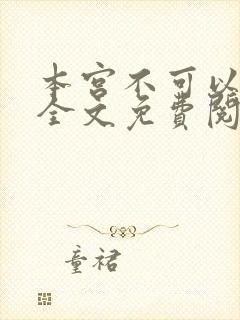 本宫不可以
全文免费阅
童裙